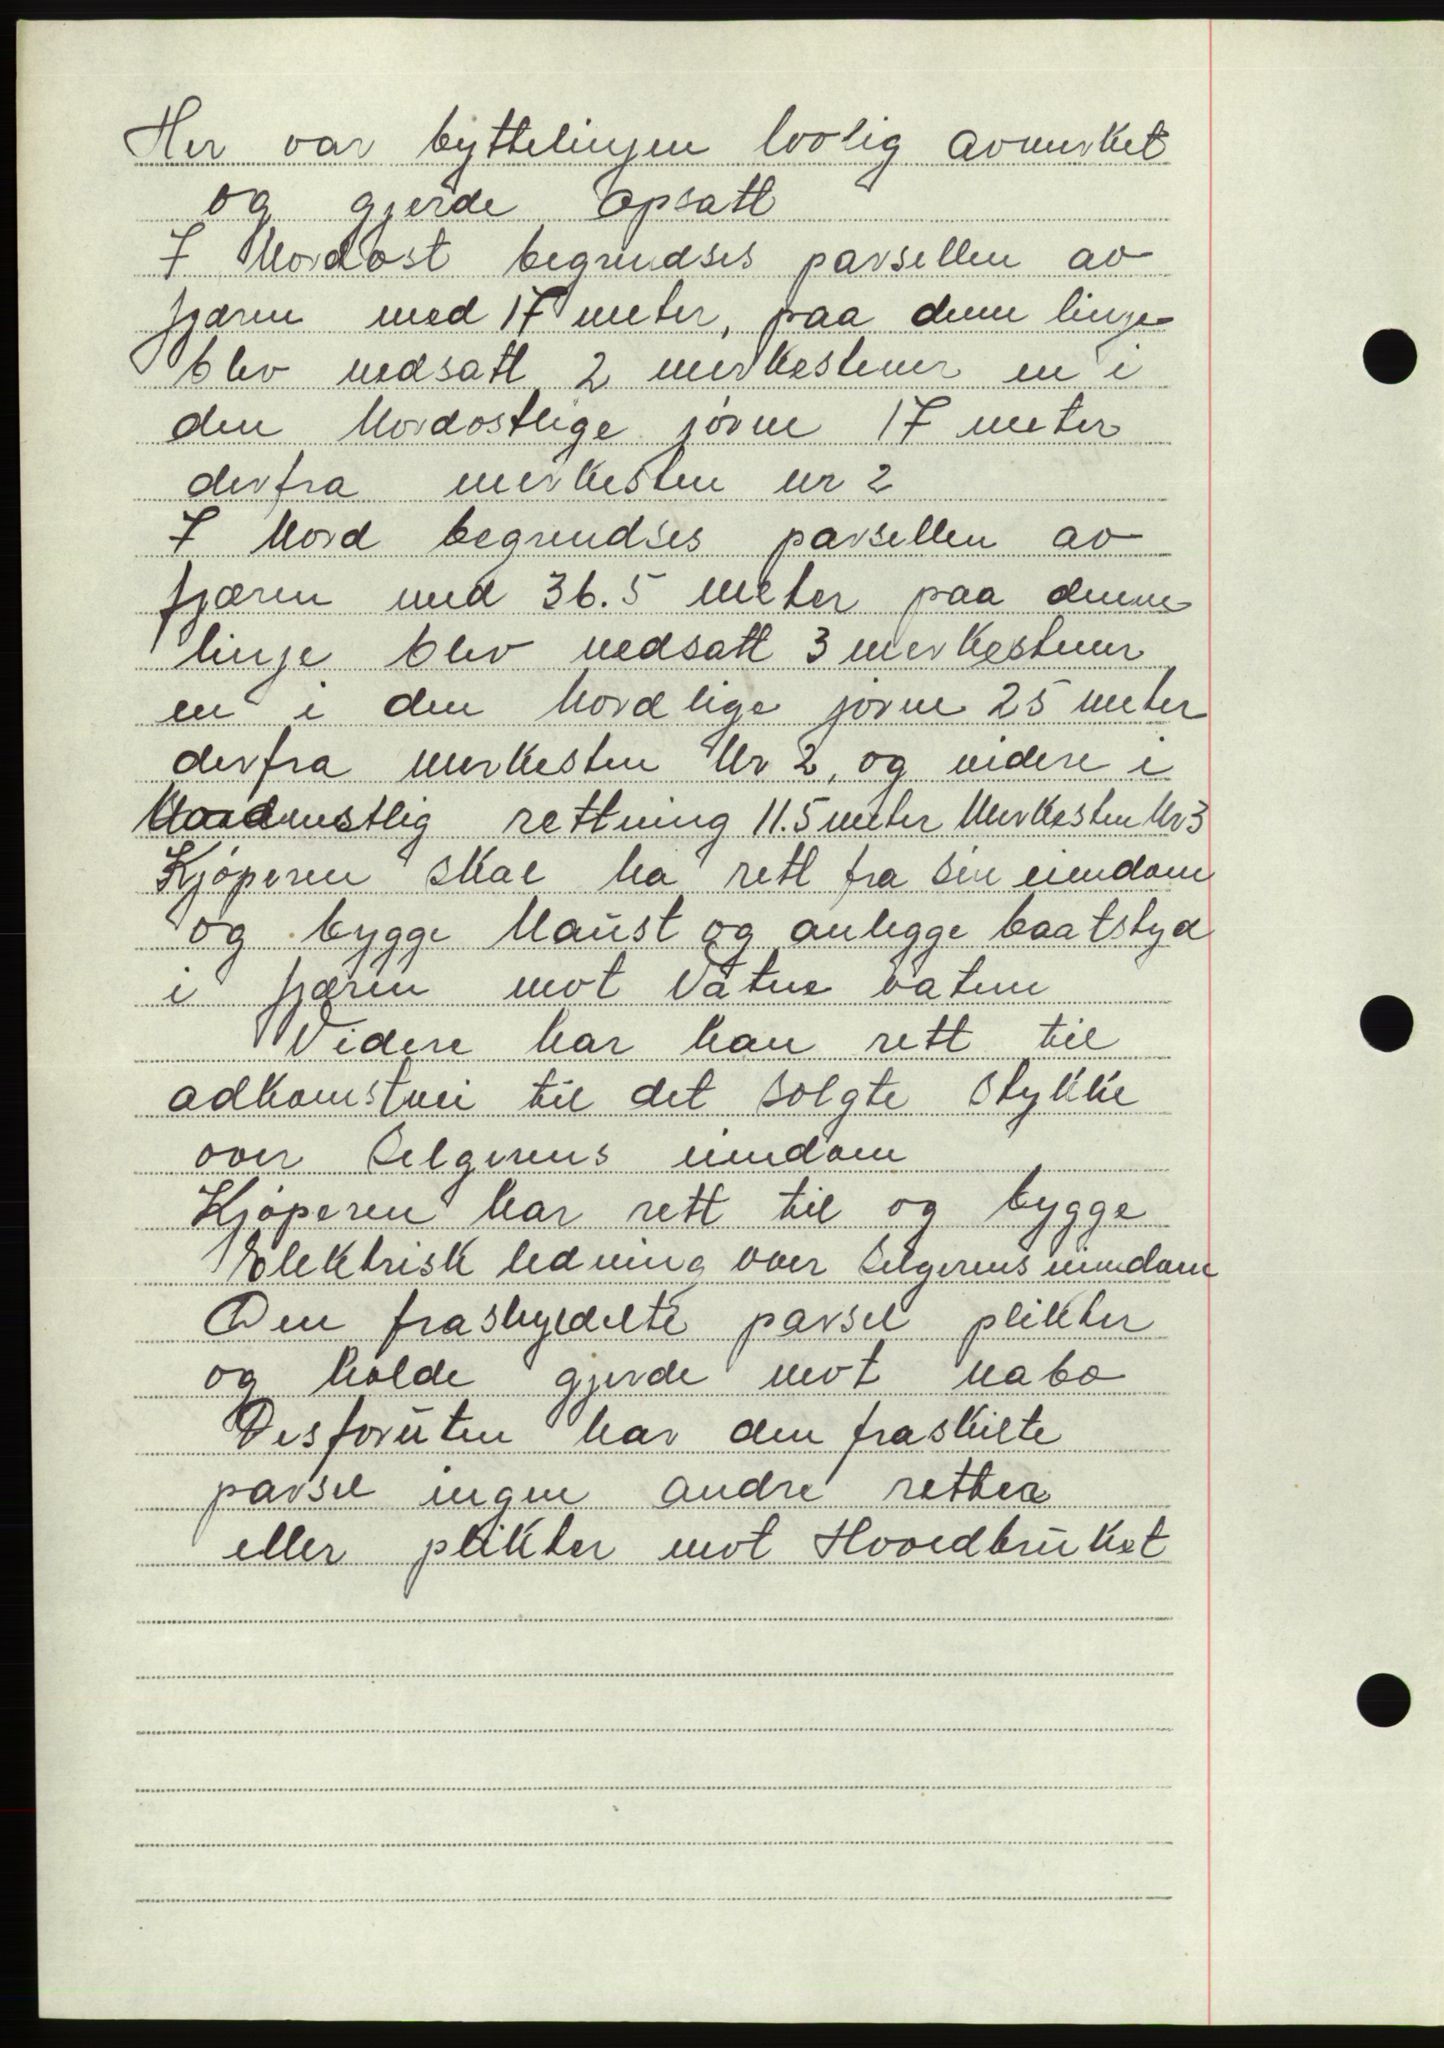 Her var byttelinjen lovlig avmerket
og gjerde opsatt
I Nordost begrendses parsellen av
fjæren med 17 meter, paa denne linje
blev nedsatt 2 merkestener en i
den Nordostlige jörne 17 meter
derfra merkesten nr 2
I Nord begrendses parsellen av
fjæren med 36.5 meter paa denne
linje blev nedsatt 3 merkestener
en i den Nordlige jörne 25 meter
derfra merkesten Nr 2, og videre i
Nordvestlig rettning 11.5 meter Merkesten Nr 3
Kjöperen skal ha rett fra sin eiendom
og bygge Naust og anlegge baatstyd
i fjæren mot Vatne vatnne
Videre har han rett til
adkomstvei til det solgte stykke
over Selgerens eiendom
Kjöperen har rett til og bygge
Elektrisk ledning over Selgerens eiendom
Den fraskyldelte parsel plikter
og holde gjerde mot nabo
Desforuten har den fraskilte
parsel ingen andre retter
eller plikter mot Hovedbruket